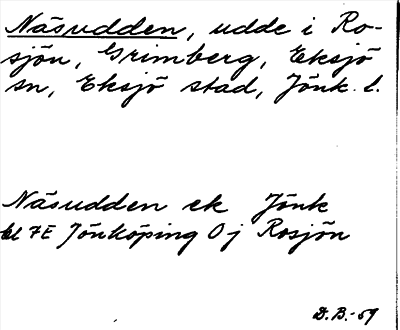 Näsudden, udde i Ro-
sjön, Grimberg, Eksjö
sn, Eksjö stad, Jönk. l.
Näsudden ek Jönk
bl 7E Jönköping Oj Rosjön
D.B.-59